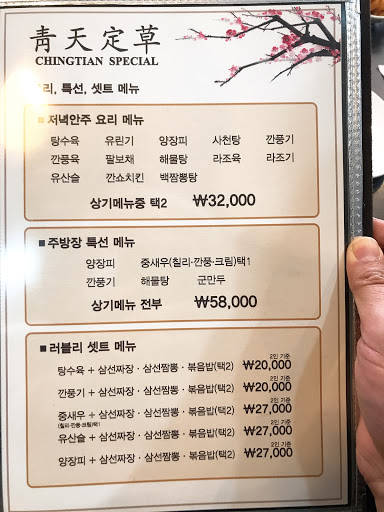 靑天定草
CHINGTIAN SPECIAL
리, 특선, 셋트 메뉴
■저녁안주 요리 메뉴
탕수육 유린기 양장피 사천탕 깐풍기
깐풍육 팔보채 해물탕 라조육 라조기
유산슬 깐쇼치킨 백짬뽕탕
상기메뉴중 택2 ₩32,000
■주방장 특선 메뉴
양장피 중새우(칠리·깐풍·크림)택1
깐풍기 해물탕 군만두
상기메뉴 전부 ₩58,000
■러블리 셋트 메뉴
2인 기준
탕수육 + 삼선짜장 · 삼선짬뽕 · 볶음밥(택2) ₩20,000
2인 기준
깐풍기 + 삼선짜장 · 삼선짬뽕 · 볶음밥(택2) ₩20,000
2인 기준
중새우 + 삼선짜장 · 삼선짬뽕 · 볶음밥(택2) ₩27,000
(칠리·깐풍·크림)택1
2인 기준
유산슬 + 삼선짜장 · 삼선짬뽕 · 볶음밥(택2) ₩27,000
2인 기준
양장피 + 삼선짜장 · 삼선짬뽕 · 볶음밥(택2) ₩27,000